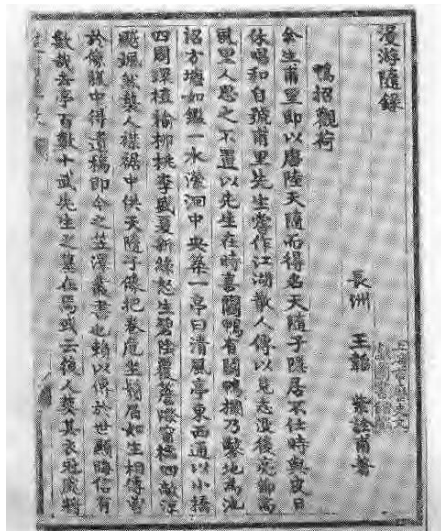 漫游隨錄
長洲 王韜 紫詮甫著
鴨沼觀荷
余生甫里即以唐陸天隨而得名天隨子隱居不仕時與皮日
休唱和自號甫里先生嘗作江湖散人傳以見志沒後
里人思之不置以先生在時喜鬬鴨有鬬鴨欄乃鑿地為池
沼方塘如鑑一水瀠洄中央築一亭曰清風亭東西通以小橋
四周課植榆柳桃李盛夏新綠怒生碧陰覆簷窗檻四敞涼
颸颯然襲人襟裾中供天隨子像把卷危坐鬚眉如生相傳昔
於像腹中得遺稿即今之笠澤叢書也賴以傳於世顯晦信有
數哉去亭百數十武先生之墓在焉或云後人葬其衣冠處將